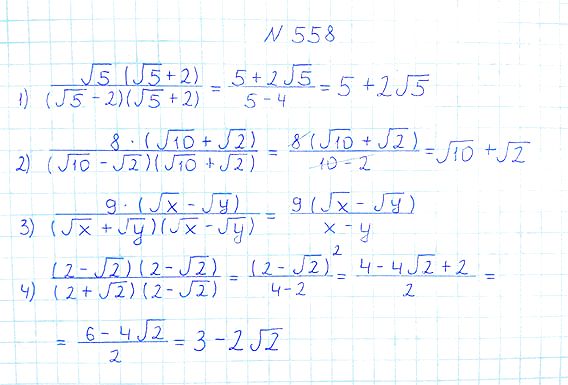 N 558
1) (√5 (√5+2))/((√5-2)(√5+2)) = (5+2√5)/(5-4) = 5+2√5
2) (8·(√10+√2))/((√10-√2)(√10+√2)) = (8(√10+√2))/(10-2) = √10+√2
3) (9·(√x-√y))/((√x+√y)(√x-√y)) = (9(√x-√y))/(x-y)
4) ((2-√2)(2-√2))/((2+√2)(2-√2)) = (2-√2)²/(4-2) = (4-4√2+2)/2 =
= (6-4√2)/2 = 3-2√2